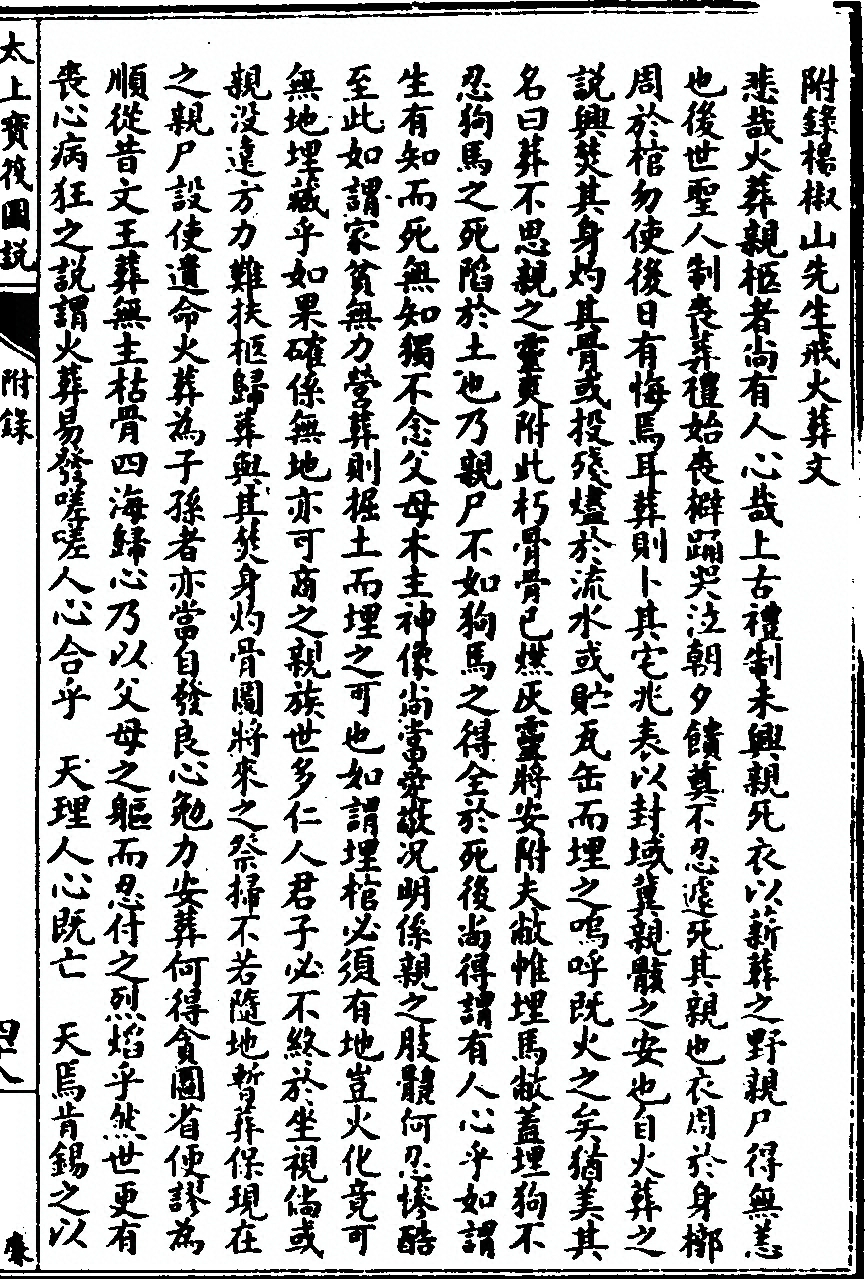 附錄楊椒山先生戒火葬文
悲哉火葬親柩者尚有人心哉上古禮制未興親死衣以薪葬之野親尸得無恙
也後世聖人制喪葬禮始喪擗踊哭泣朝夕饋奠不忍遽死其親也衣周於身槨
周於棺勿使後日有悔焉耳葬則卜其宅兆表以封域冀親骸之安也自火葬之
說興焚其身灼其骨或投殘燼於流水或貯瓦缶而埋之嗚呼既火之矣猶美其
名曰葬不思親之靈爽附此朽骨骨已燬灰靈將安附夫敝帷埋馬敝蓋埋狗不
忍狗馬之死陷於土也乃親尸不如狗馬之得全於死後尚得謂有人心乎如謂
生有知而死無知獨不念父母木主神像尚當愛敬况明係親之肢體何忍慘酷
至此如謂家貧無力營葬則掘土而埋之可也如謂埋棺必須有地豈火化竟可
無地埋藏乎如果確係無地亦可商之親族世多仁人君子必不終於坐視倘或
親没遠方力難扶柩歸葬與其焚身灼骨圖將來之祭掃不若隨地暫葬保現在
之親尸設使遺命火葬為子孫者亦當自發良心勉力安葬何得貪圖省便謬為
順從昔文王葬無主枯骨四海歸心乃以父母之軀而忍付之烈焰乎然世更有
喪心病狂之説謂火葬易發嗟嗟人心合乎　天理人心既亡　天焉肯錫之以
太上寶筏圖説
附錄
四十八